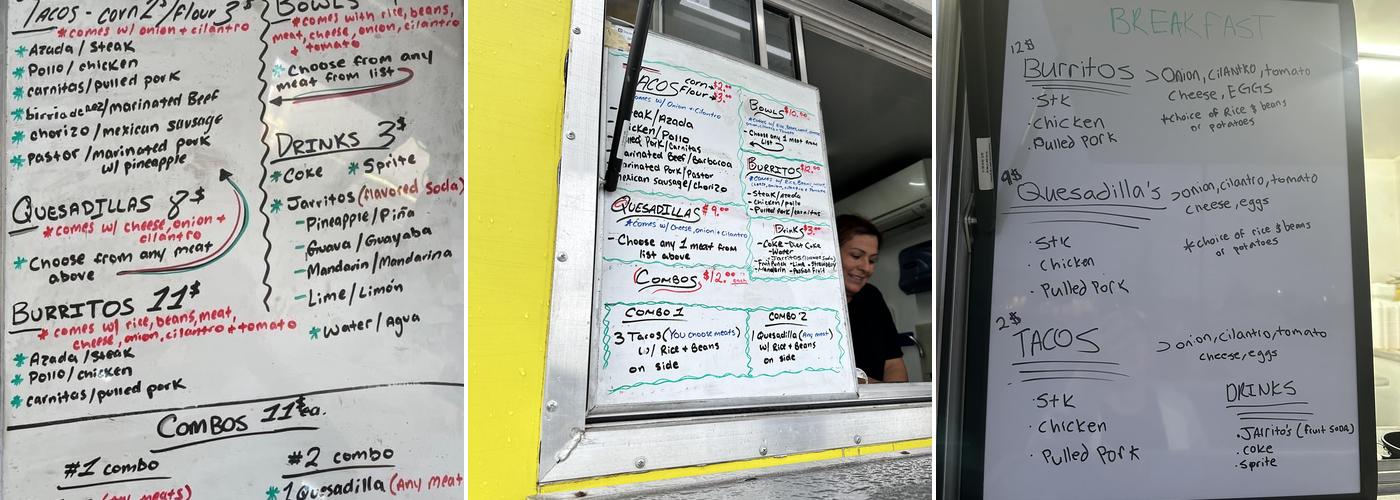 TACOS - corn 2$/flour 3$
*comes w/ onion + cilantro
* Azada / steak
* Pollo / chicken
* carnitas/pulled pork
* birria de res/marinated Beef
* chorizo/mexican sausage
* pastor /marinated pork
w/ pineapple
QUESADILLAS 8$
*comes w/ cheese, onion +
cilantro
* Choose from any meat
above
BURRITOS 11$
* comes w/ rice, beans, meat,
cheese, onion, cilantro + tomato
* Azada /steak
* Pollo / chicken
* carnitas/pulled pork
BOWLS
*comes with rice, beans,
meat, cheese, onion, cilantro
+ tomato
* Choose from any
meat from list
DRINKS 3$
* Coke * Sprite
* Jarritos (flavored Soda)
- Pineapple / Piña
- Guava / Guayaba
- Mandarin / Mandarina
- Lime / Limón
* Water / Agua
COMBOS 11$ea.
#1 combo
(Any meats)
#2 combo
* 1 Quesadilla (Any meat
TACOS corn $2.00
flour $3.00
*comes w/ Onion + Cilantro
Steak/Azada
icken/Pollo
lled Pork/Carnitas
arinated Beef/Barbacoa
arinated Pork/Pastor
exican sausage/chorizo
QUESADILLAS $9.00
*Comes w/ Cheese, onion + Cilantro
- Choose any 1 meat from
list above
COMBOS $12.00 each
COMBO 1
3 Tacos (You choose meats)
w/ Rice + Beans
on side
BOWLS $10.50
- Choose any 1 meat from
List
BURRITOS $12.00
- Steak/azada
- Chicken/pollo
- Pulled Pork/carnitas
Drinks $3.00
- Coke - Diet Coke
- Water
- Jarritos
- Fruit Punch - Lime - Strawberry
- Mandarin - Passion Fruit
COMBO 2
1 Quesadilla (Any meat)
w/ Rice + Beans
on side
BREAKFAST
12$
Burritos > Onion, cilantro, tomato
cheese, EGGS
*choice of Rice & beans
or potatoes
· Stk
· chicken
· Pulled pork
9$
Quesadilla's > onion, cilantro, tomato
cheese, eggs
*choice of rice & beans
or potatoes
· Stk
· Chicken
· Pulled Pork
2$
TACOS > onion, cilantro, tomato
cheese, eggs
· Stk
· Chicken
· Pulled Pork
DRINKS
· Jarrito's (fruit soda)
· coke
· sprite